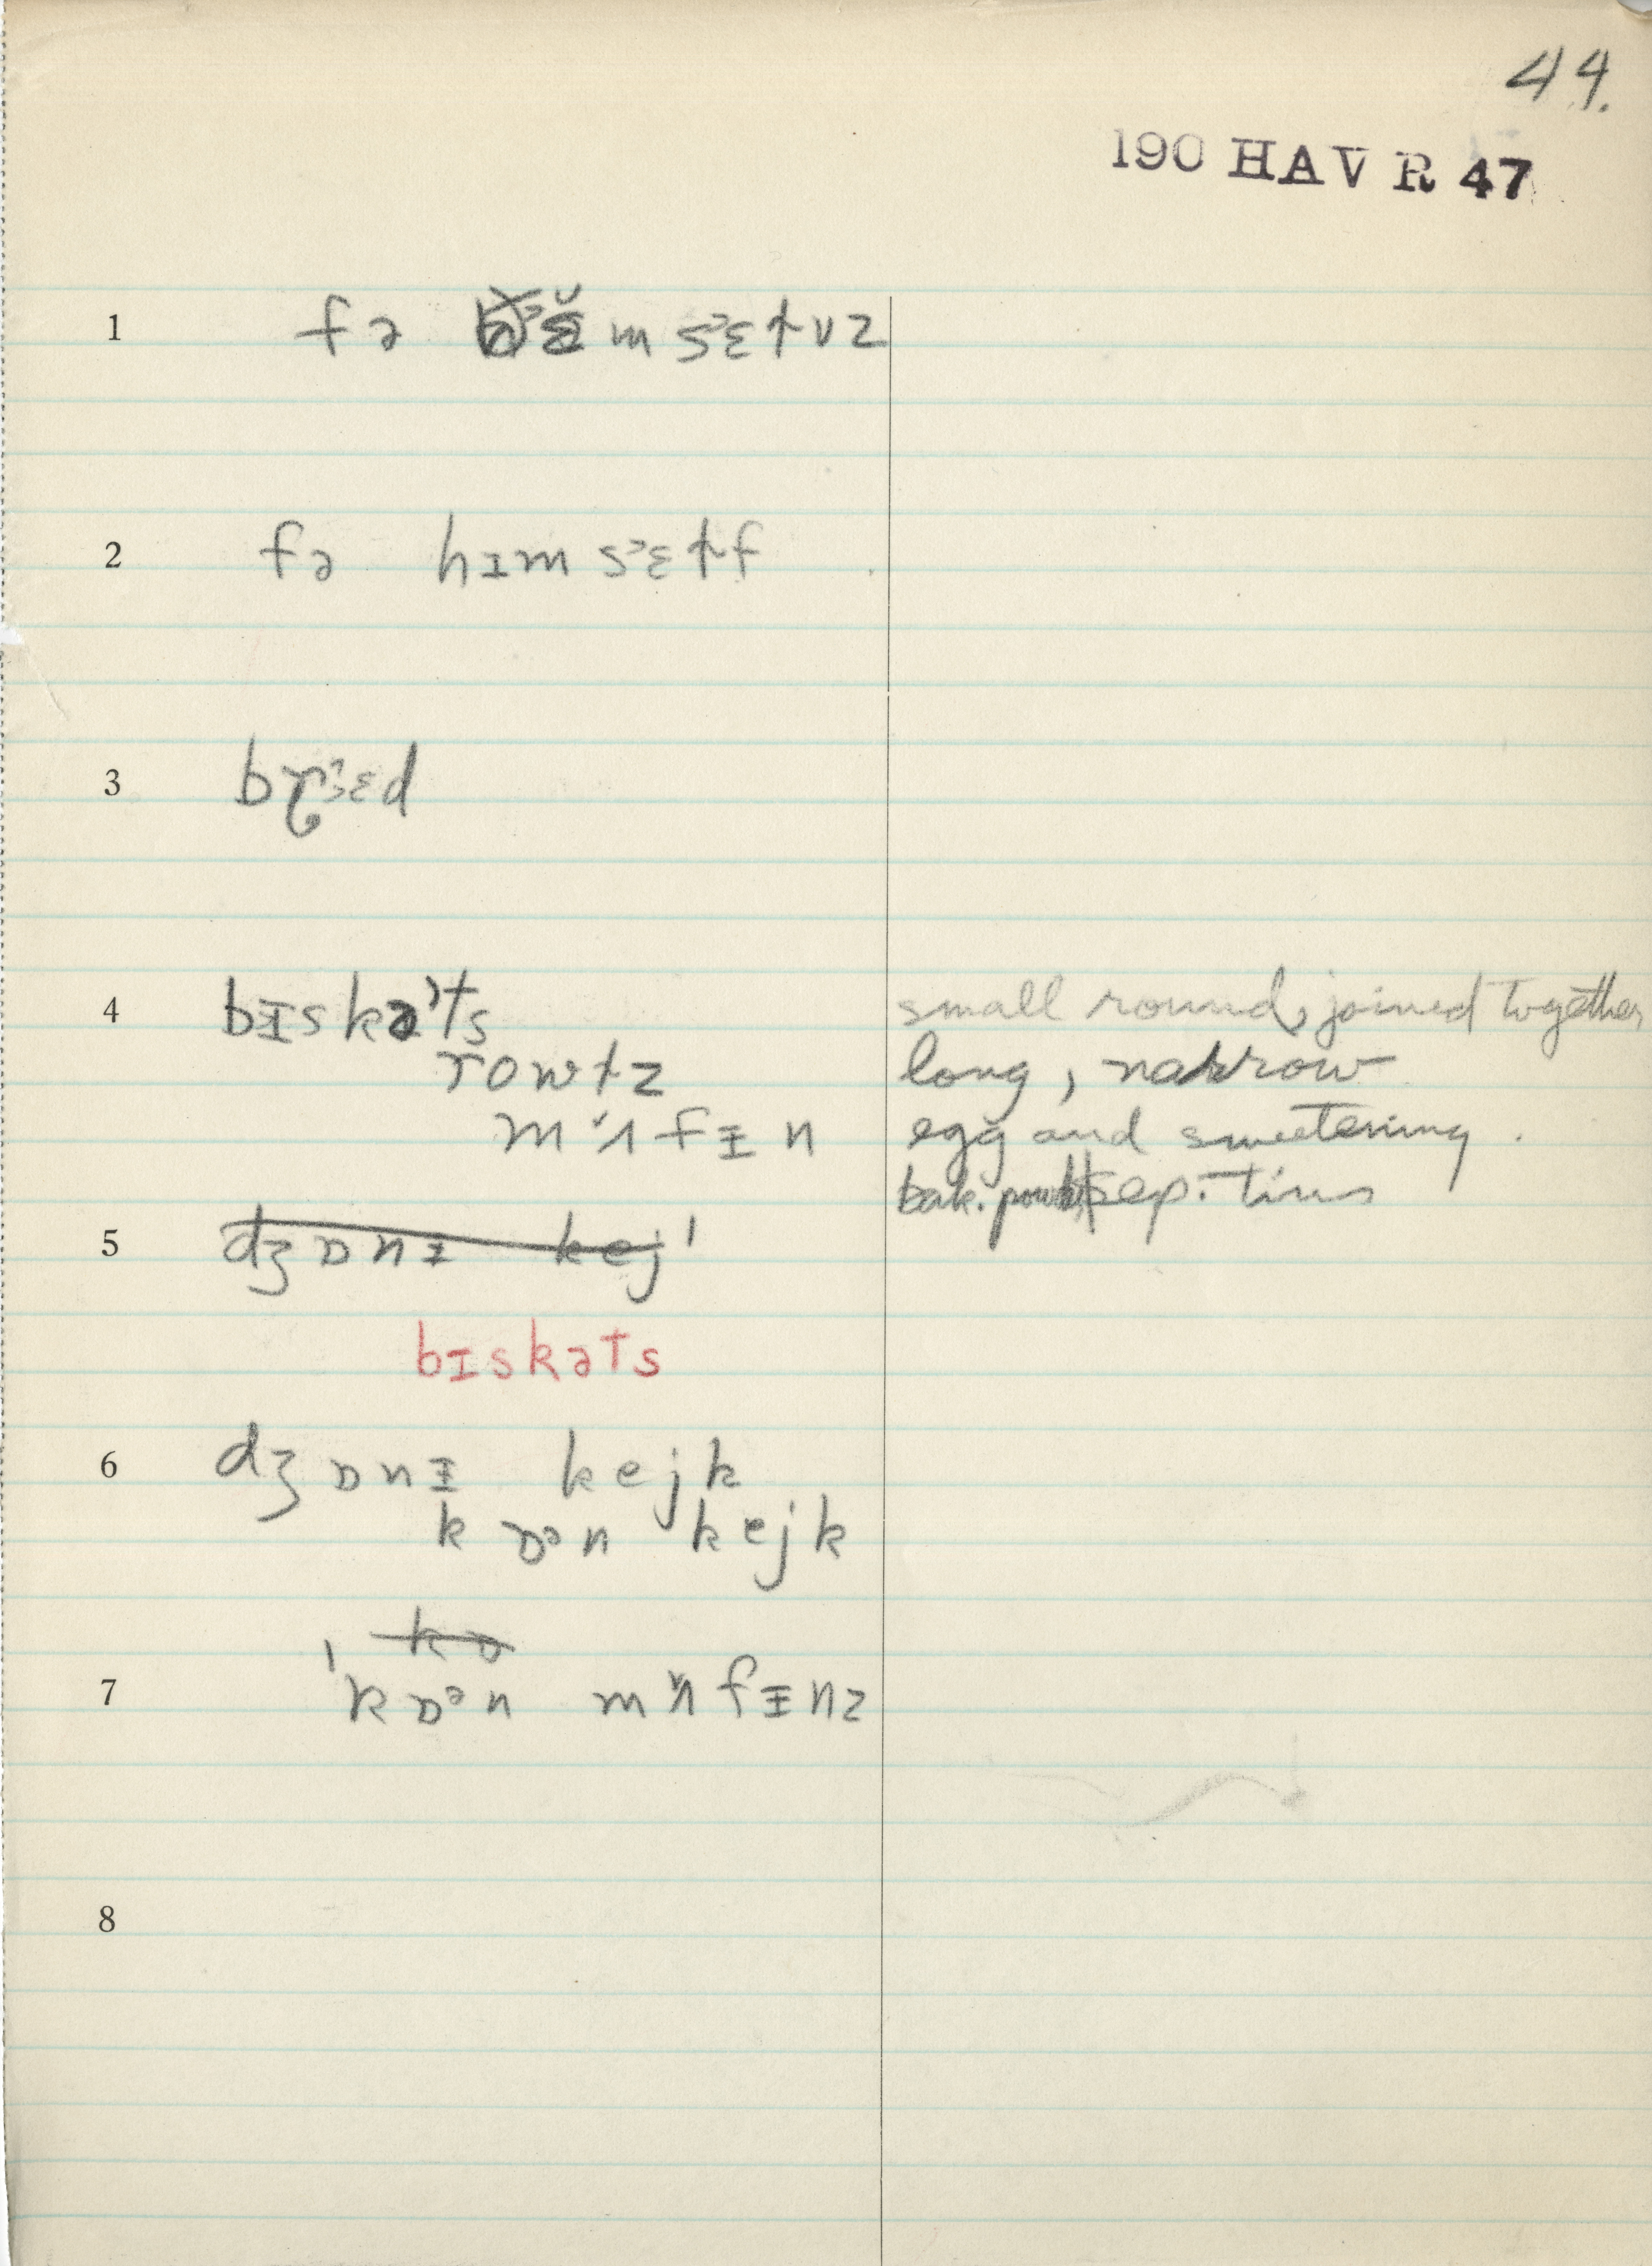 44.
190 HAV R 47
1 fə m sᵊɛɫvz
2 fə hɪm sᵊɛɫf
3 br̥ᵊɛd
4 bɪskəʾts small round, joined together
rowɫz long, narrow
mʌ̆fɪn egg and sweetening.
bak. powd. sep. tins
5 dʒɒnɪ kej'
bɪskəts
6 dʒɒnɪ kejk
kɒᵊn kejk
kɒ
7 'kɒᵊn mʌ̆fɪnz
8